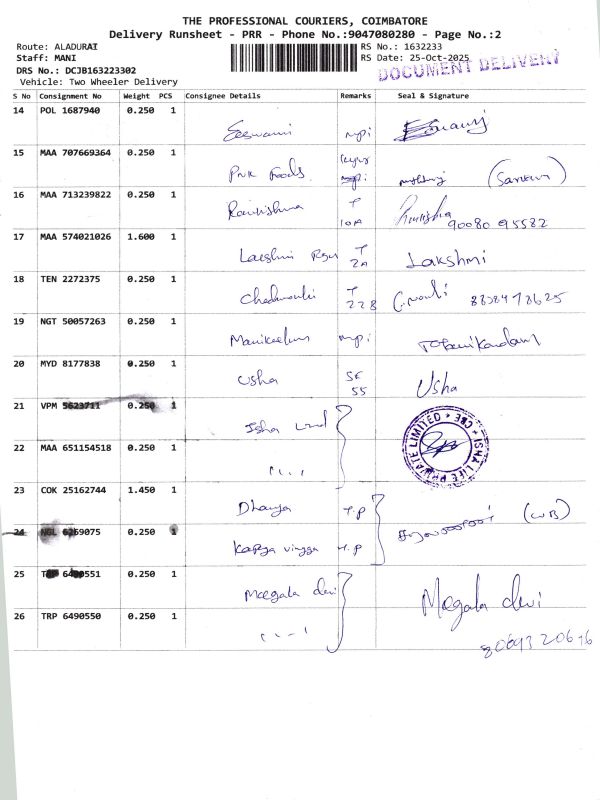 THE PROFESSIONAL COURIERS, COIMBATORE
Delivery Runsheet - PRR - Phone No.:9047080280 - Page No.:2
Route: ALADURAI
RS No.: 1632233
Staff: MANI
RS Date: 25-Oct-2025
DOCUMENT DELIVERY
DRS No.: DCJB163223302
Vehicle: Two Wheeler Delivery
S No Consignment No Weight PCS Consignee Details Remarks Seal & Signature
14 POL 1687940 0.250 1 Eswari mpi
15 MAA 707669364 0.250 1 PNK Foods
16 MAA 713239822 0.250 1 T 10A 90080 95582
17 MAA 574021026 1.600 1 T 2A Lakshmi
18 TEN 2272375 0.250 1 T 228 C. Mouli
19 NGT 50057263 0.250 1 mpi
20 MYD 8177838 0.250 1 Usha SF 55 Usha
21 VPM 5623711 0.250 1 Isha
ISHA LIFE PRIVATE LIMITED
CBE
22 MAA 651154518 0.250 1 " . . "
23 COK 25162744 1.450 1 Dhanya T.P (WB)
24 6269075 0.250 1 T.P
25 6490551 0.250 1 Magala devi Magala devi
26 TRP 6490550 0.250 1 " . . "